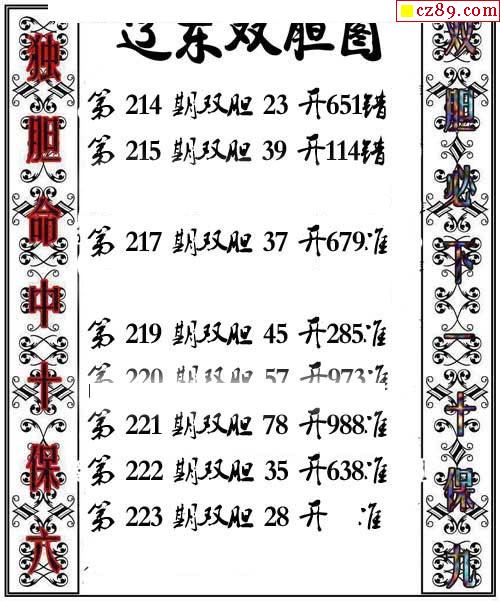 cz89.com
辽东双胆图
独胆命中十保六
第 214 期双胆 23 开651错
第 215 期双胆 39 开114错
第 217 期双胆 37 开679准
第 219 期双胆 45 开285准
第 220 期双胆 57 开973准
第 221 期双胆 78 开988准
第 222 期双胆 35 开638准
第 223 期双胆 28 开 准
双胆必下一十保九